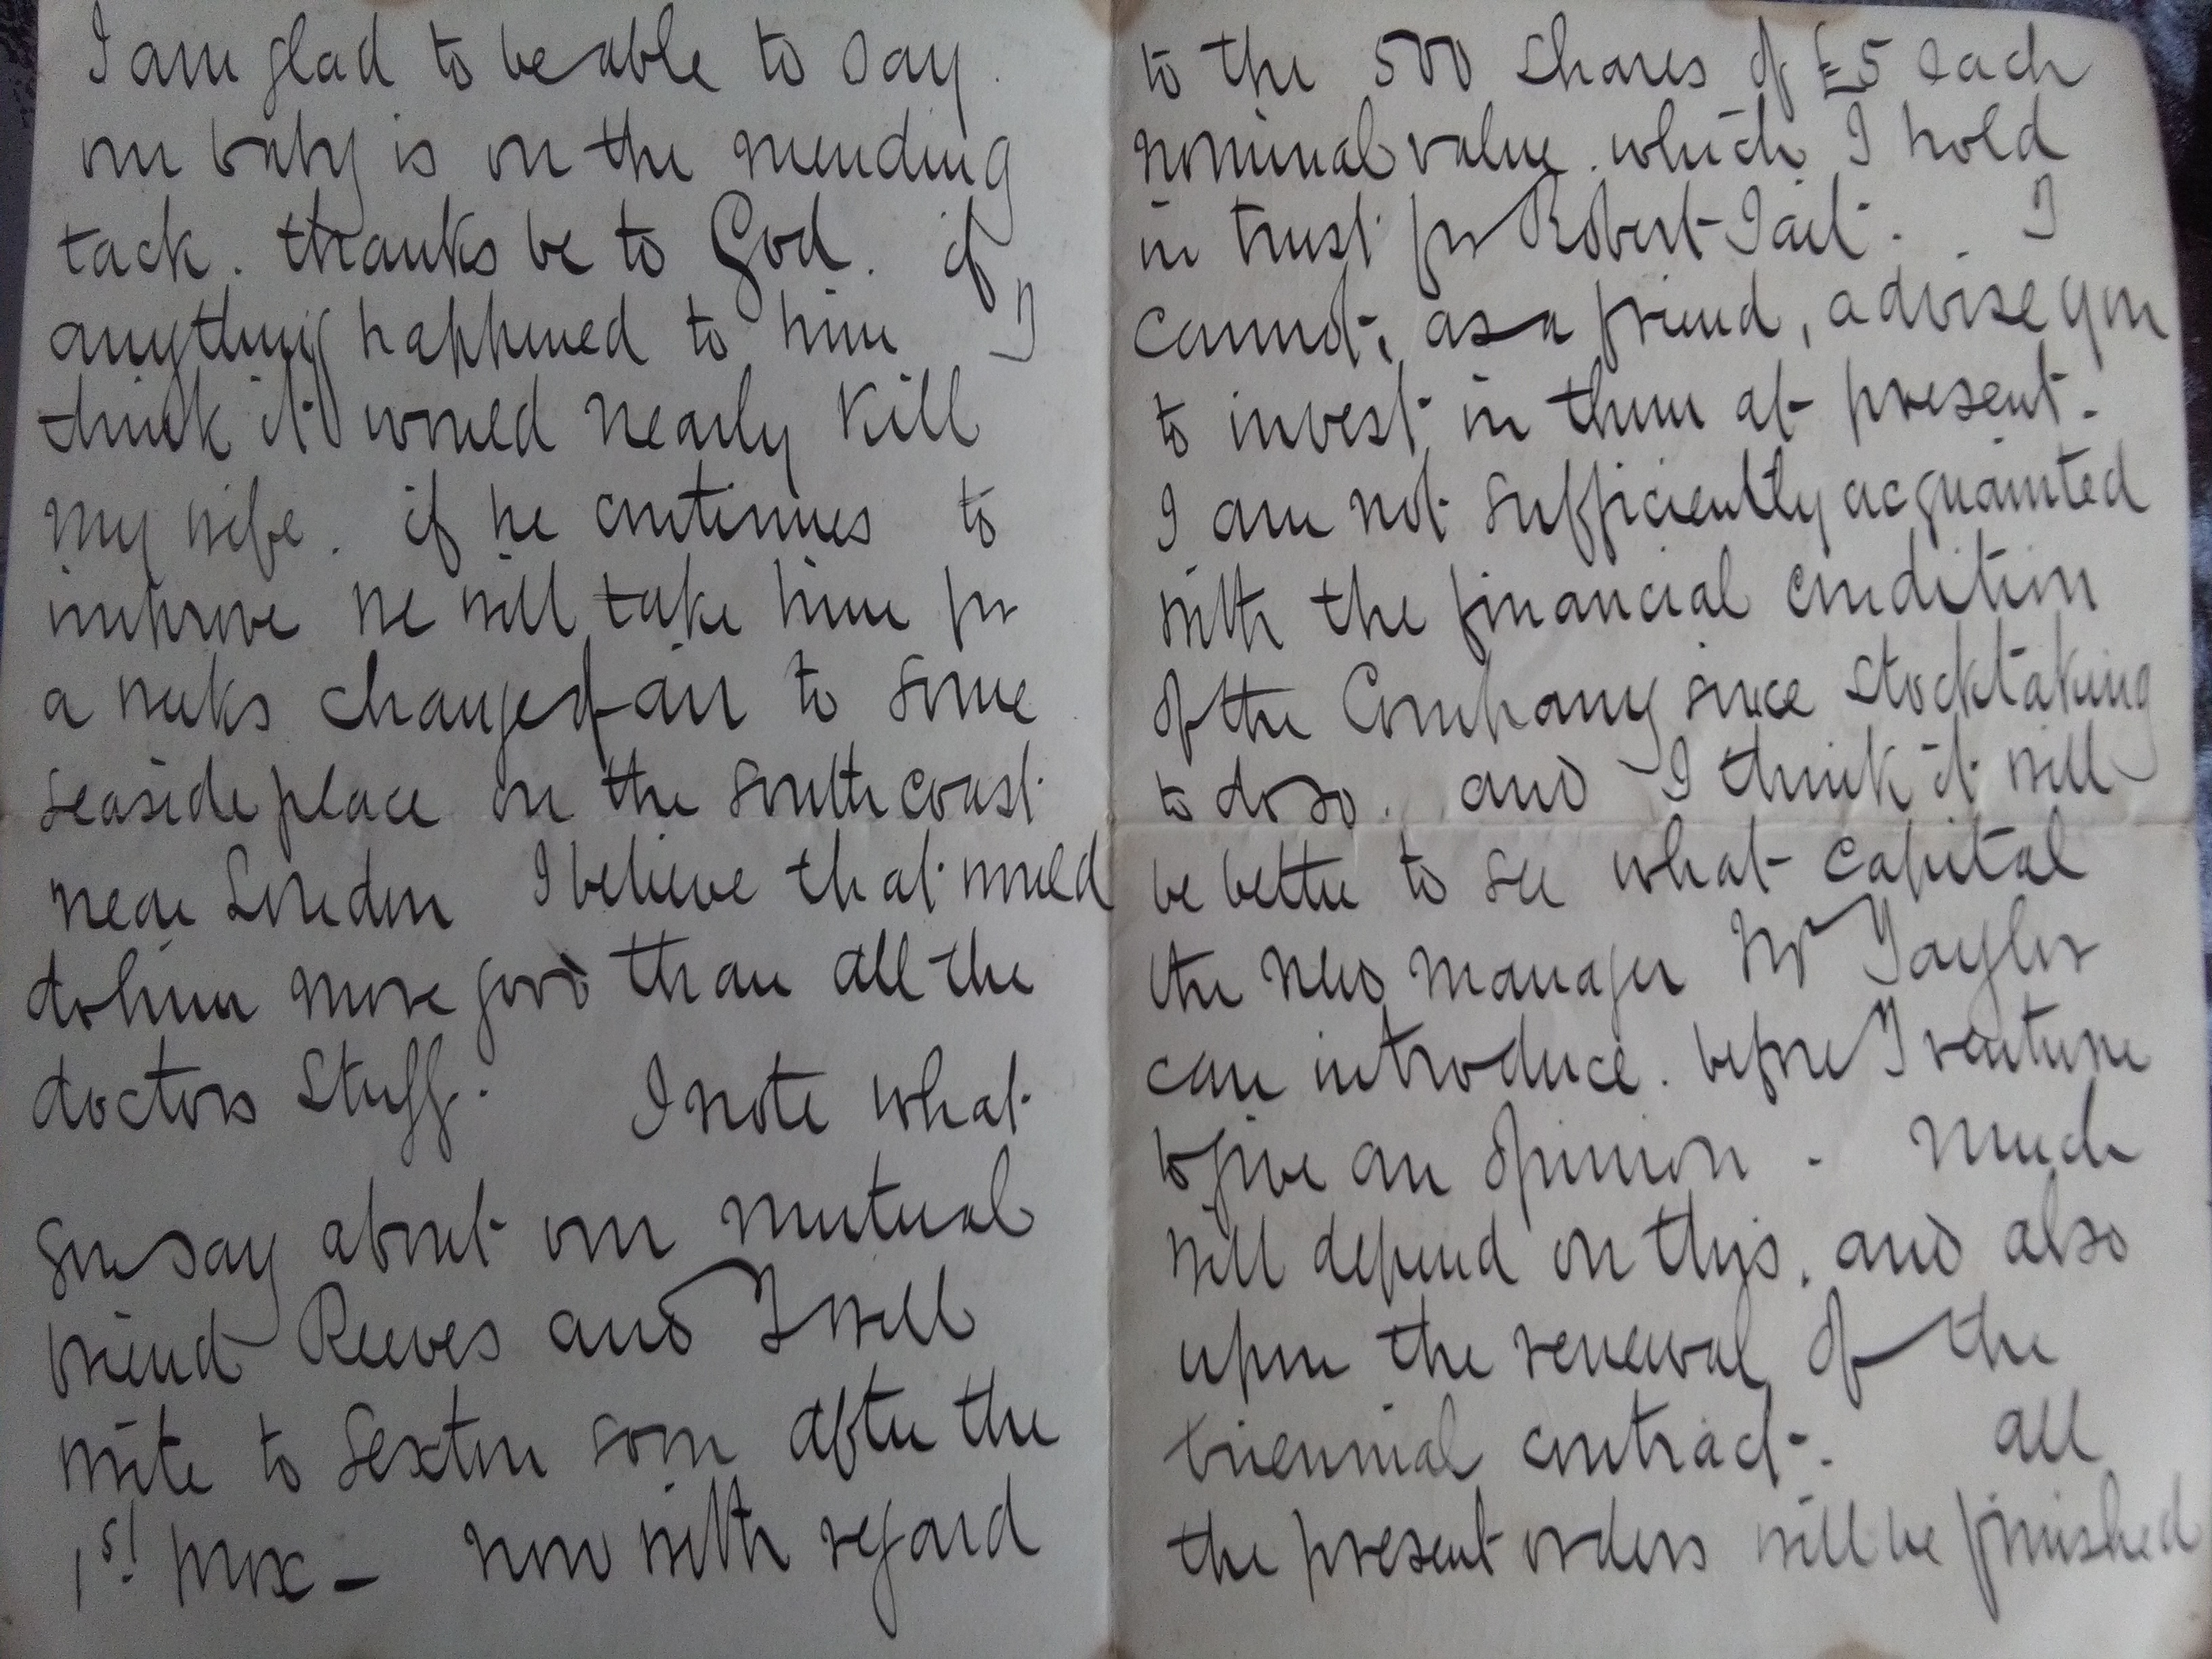 I am glad to be able to say.
our baby is on the mending
tack. thanks be to God. if
anything happened to him I
think it would nearly kill
my wife. if he continues to
improve we will take him for
a weeks change of air to some
seaside place on the south coast
near London I believe that would
do him more good than all the
doctors stuff. I note what
you say about our mutual
friend Reeves and I will
write to Sexton soon after the
1st prox – now with regard
to the 500 shares of £5 each
nominal value. which I hold
in trust for Robert Tait. I
cannot, as a friend, advise you
to invest in them at present.
I am not sufficiently acquainted
with the financial condition
of the Company since stocktaking
to do so. and I think it will
be better to see what capital
the new manager Mr Taylor
can introduce. before I venture
to give an opinion. Much
will depend on this, and also
upon the renewal of the
triennial contract. all
the present orders will be finished